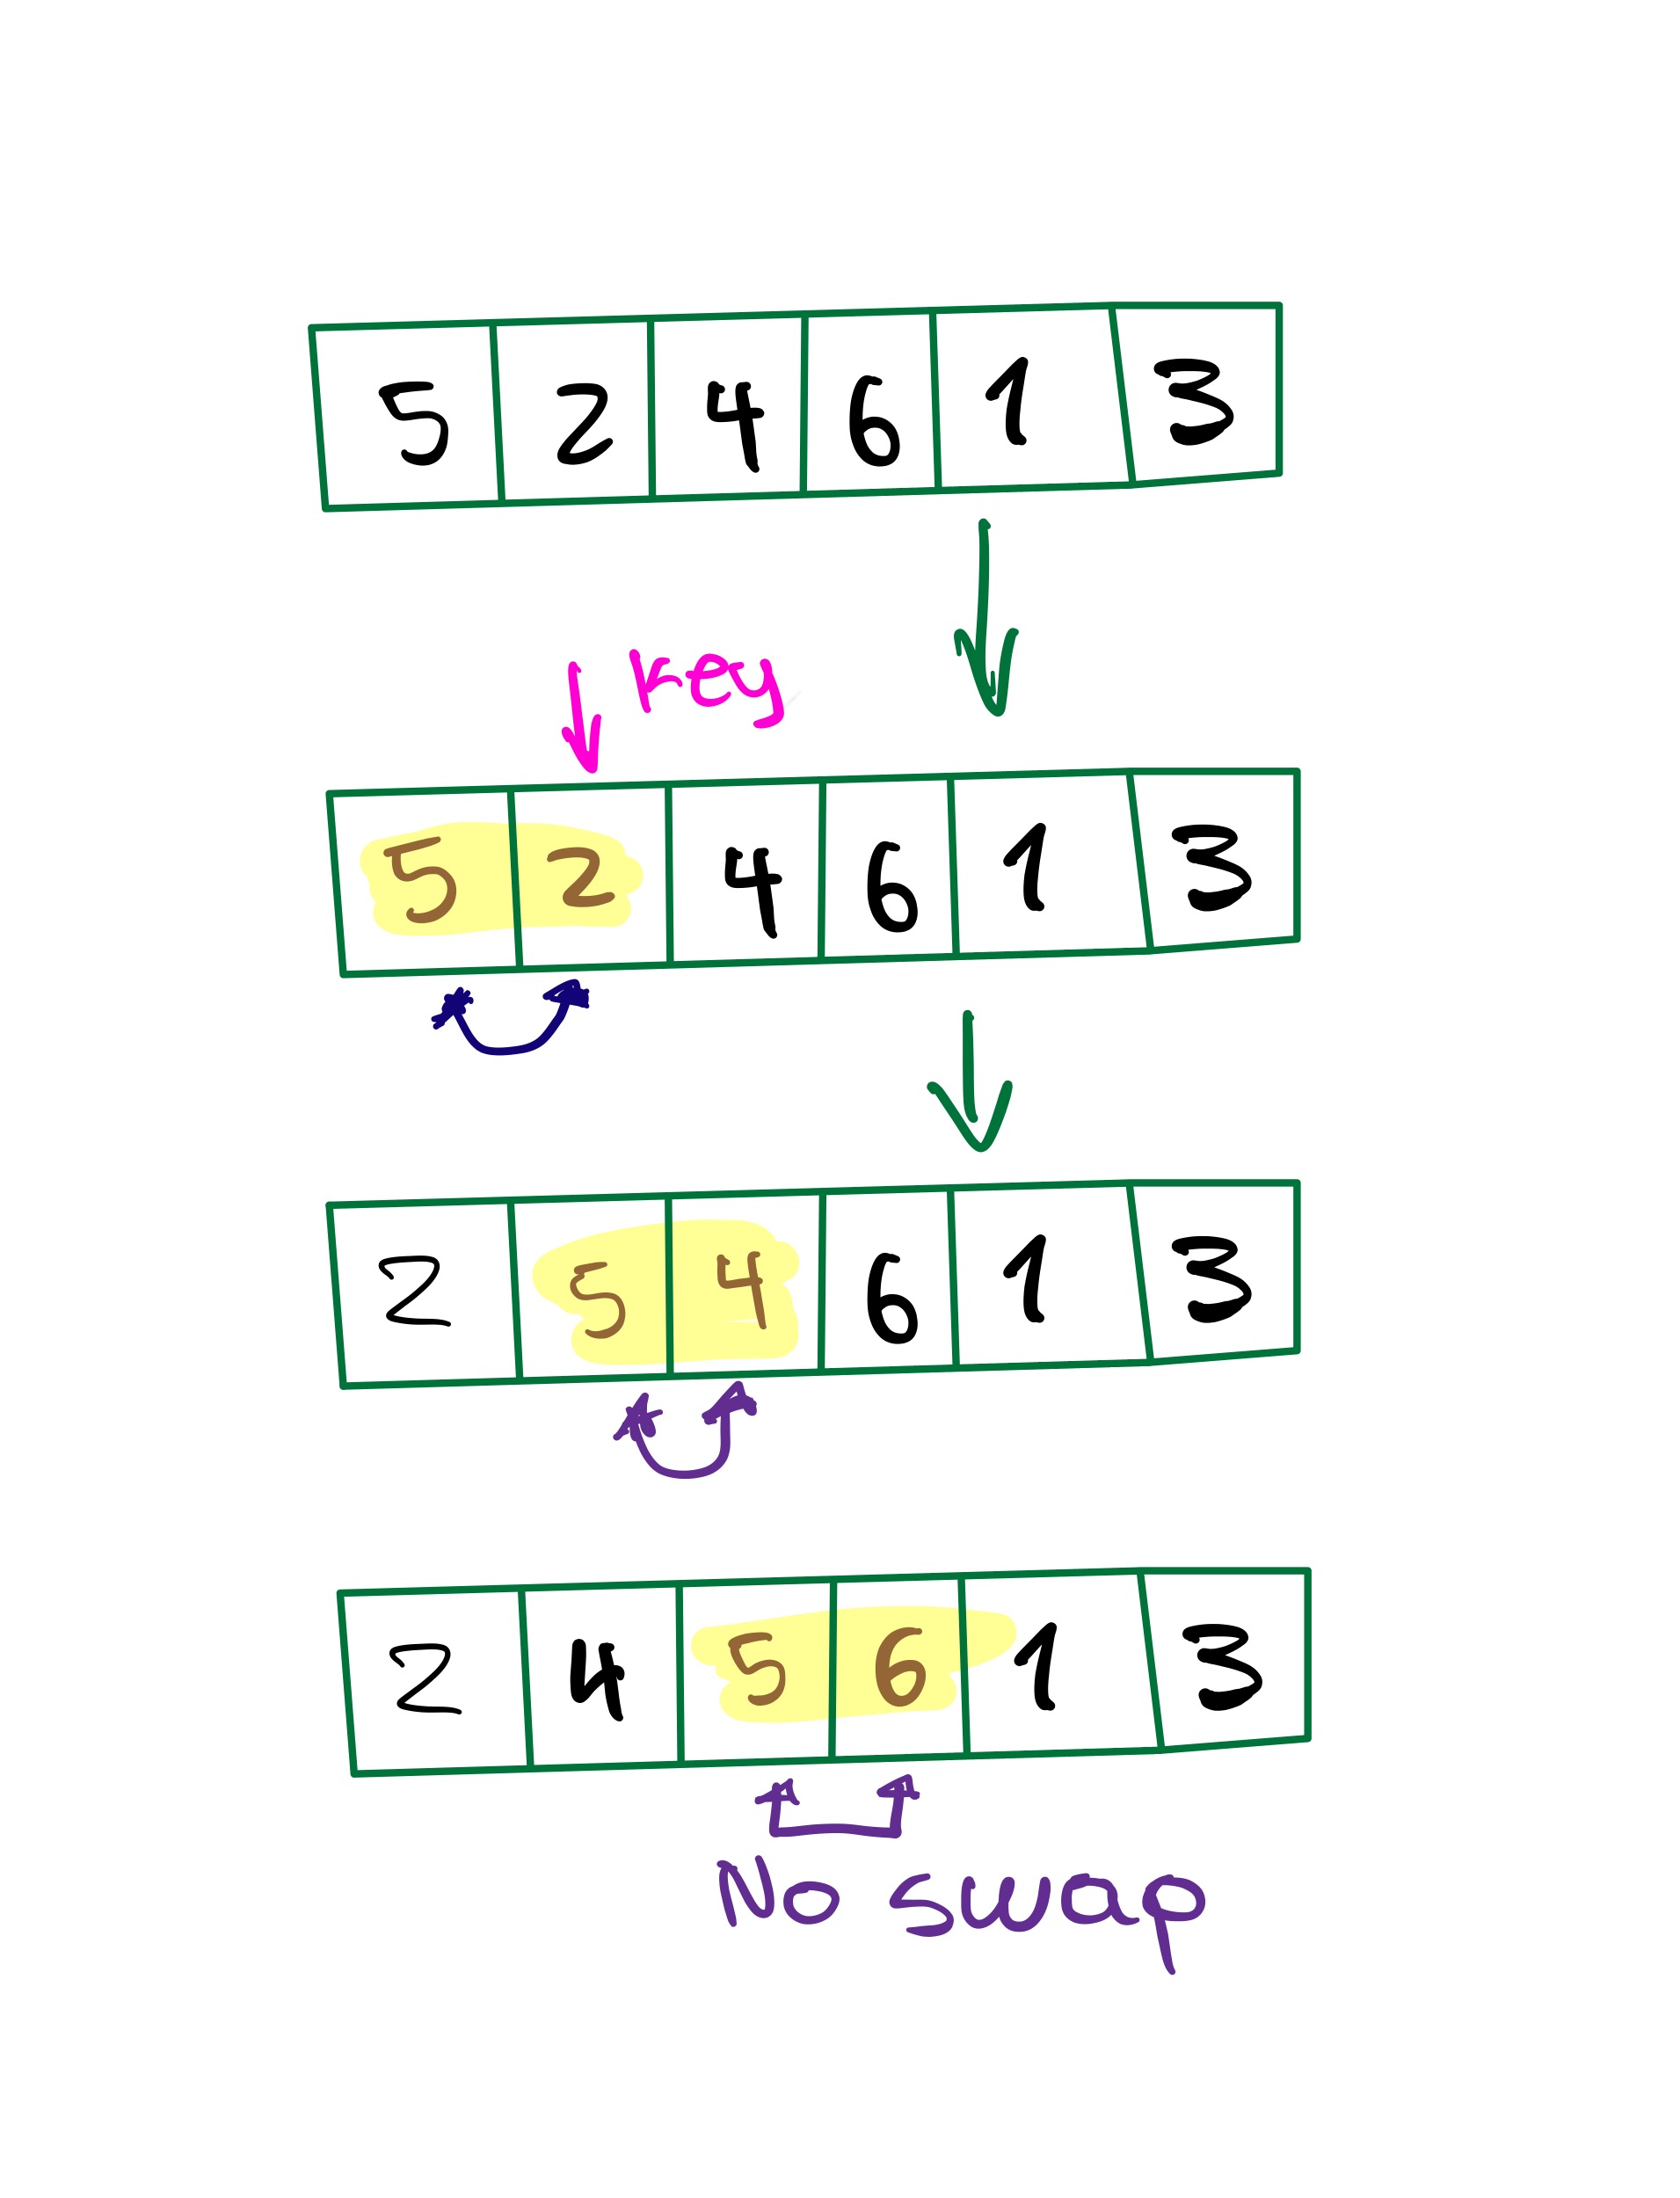 5 2 4 6 1 3
key
5 2 4 6 1 3
2 5 4 6 1 3
2 4 5 6 1 3
No swap